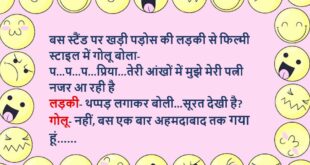 बस स्टैंड पर खड़ी पड़ोस की लड़की से फिल्मी
स्टाइल में गोलू बोला-
प...प...प...प्रिया...तेरी आंखों में मुझे मेरी पत्नी
नजर आ रही है
लड़की- थप्पड़ लगाकर बोली...सूरत देखी है?
गोलू- नहीं, बस एक बार अहमदाबाद तक गया
हूं......